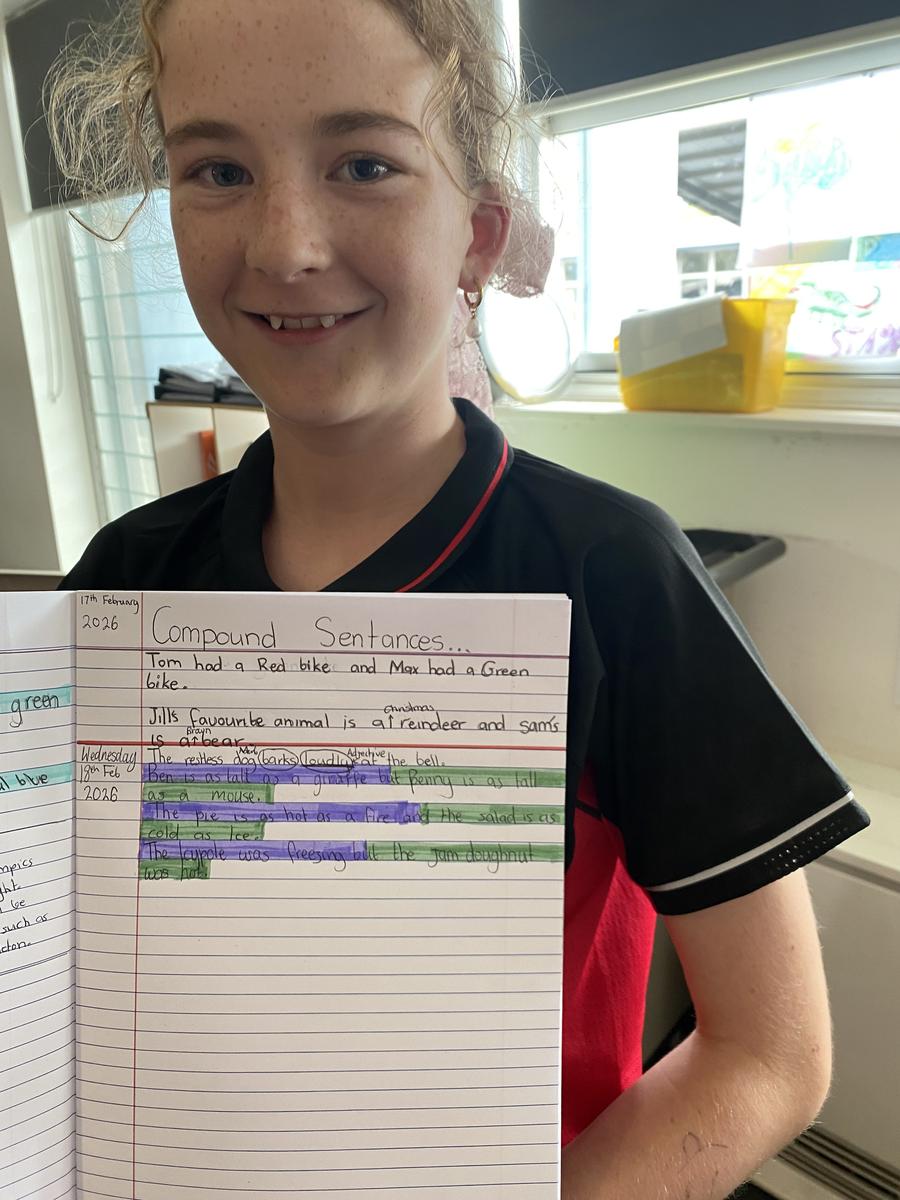 17th February
2026
Compound Sentances...
Tom had a Red bike and Max had a Green
bike.
Christmas
Jill's favourite animal is a reindeer and sam's
Brown
is a bear
Wednesday
18th Feb
2026
Adjective
The restless dog barks loudly at the bell.
Ben is as tall as a giraffe but Penny is as tall
as a mouse.
The pie is as hot as a fire and the salad is as
cold as Ice.
The icypole was freezing but the jam doughnut
was hot.
green
blue
such as